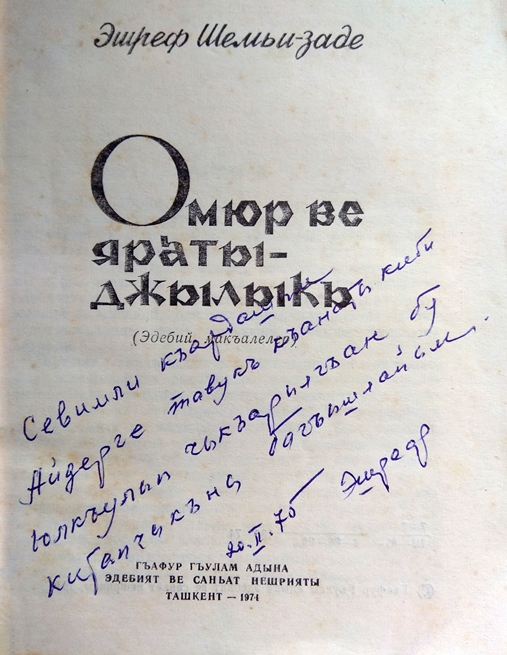 Эшреф Шемьи-заде
Омюр ве
яраты-
джылыкъ
(Эдебий макъалелер)
Севимли къардашым
Айдерге тавукъ къанаты киби
юлкъулып чыкъарылгъан бу
китапчыкъны багъышлайым.
20.II.75 Эшреф
ГЪАФУР ГЪУЛАМ АДЫНА
ЭДЕБИЯТ ВЕ САНЬАТ НЕШРИЯТЫ
ТАШКЕНТ — 1974